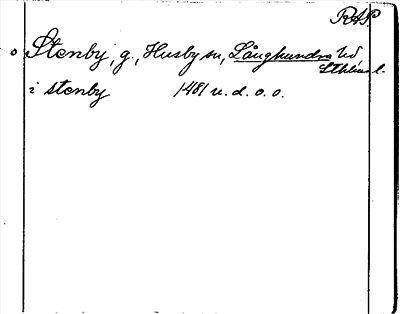 RAP.
o Stenby, g., Husby sn, Långhundra hd
Sthlms l.
i stenby 1481 u. d. o. o.